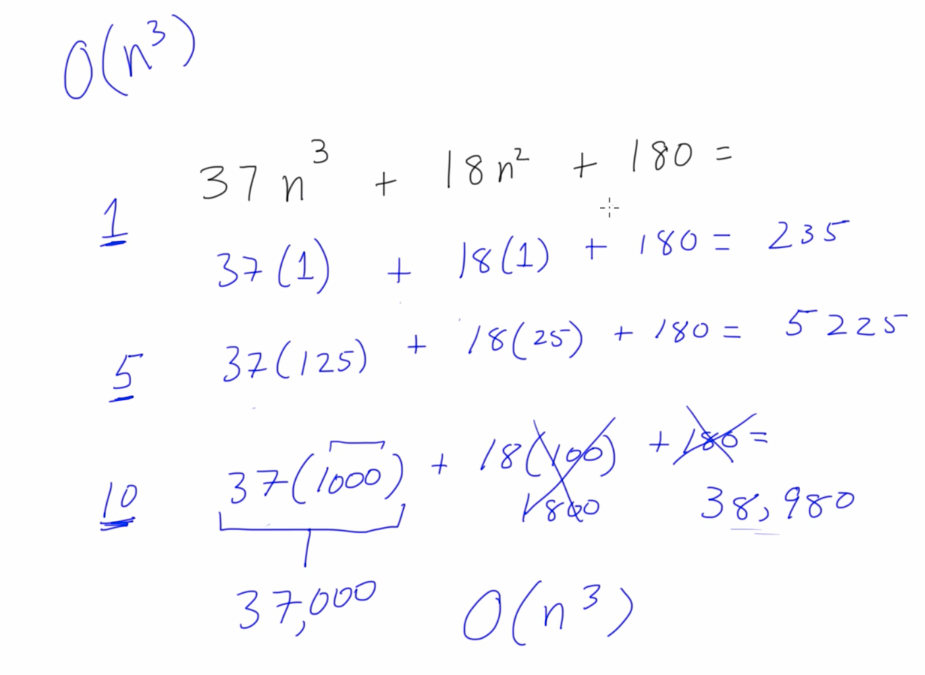 O(n³)
37n³ + 18n² + 180 =
1 37(1) + 18(1) + 180 = 235
5 37(125) + 18(25) + 180 = 5225
10 37(1000) + 18(100) + 180 =
1800 38,980
37,000 O(n³)